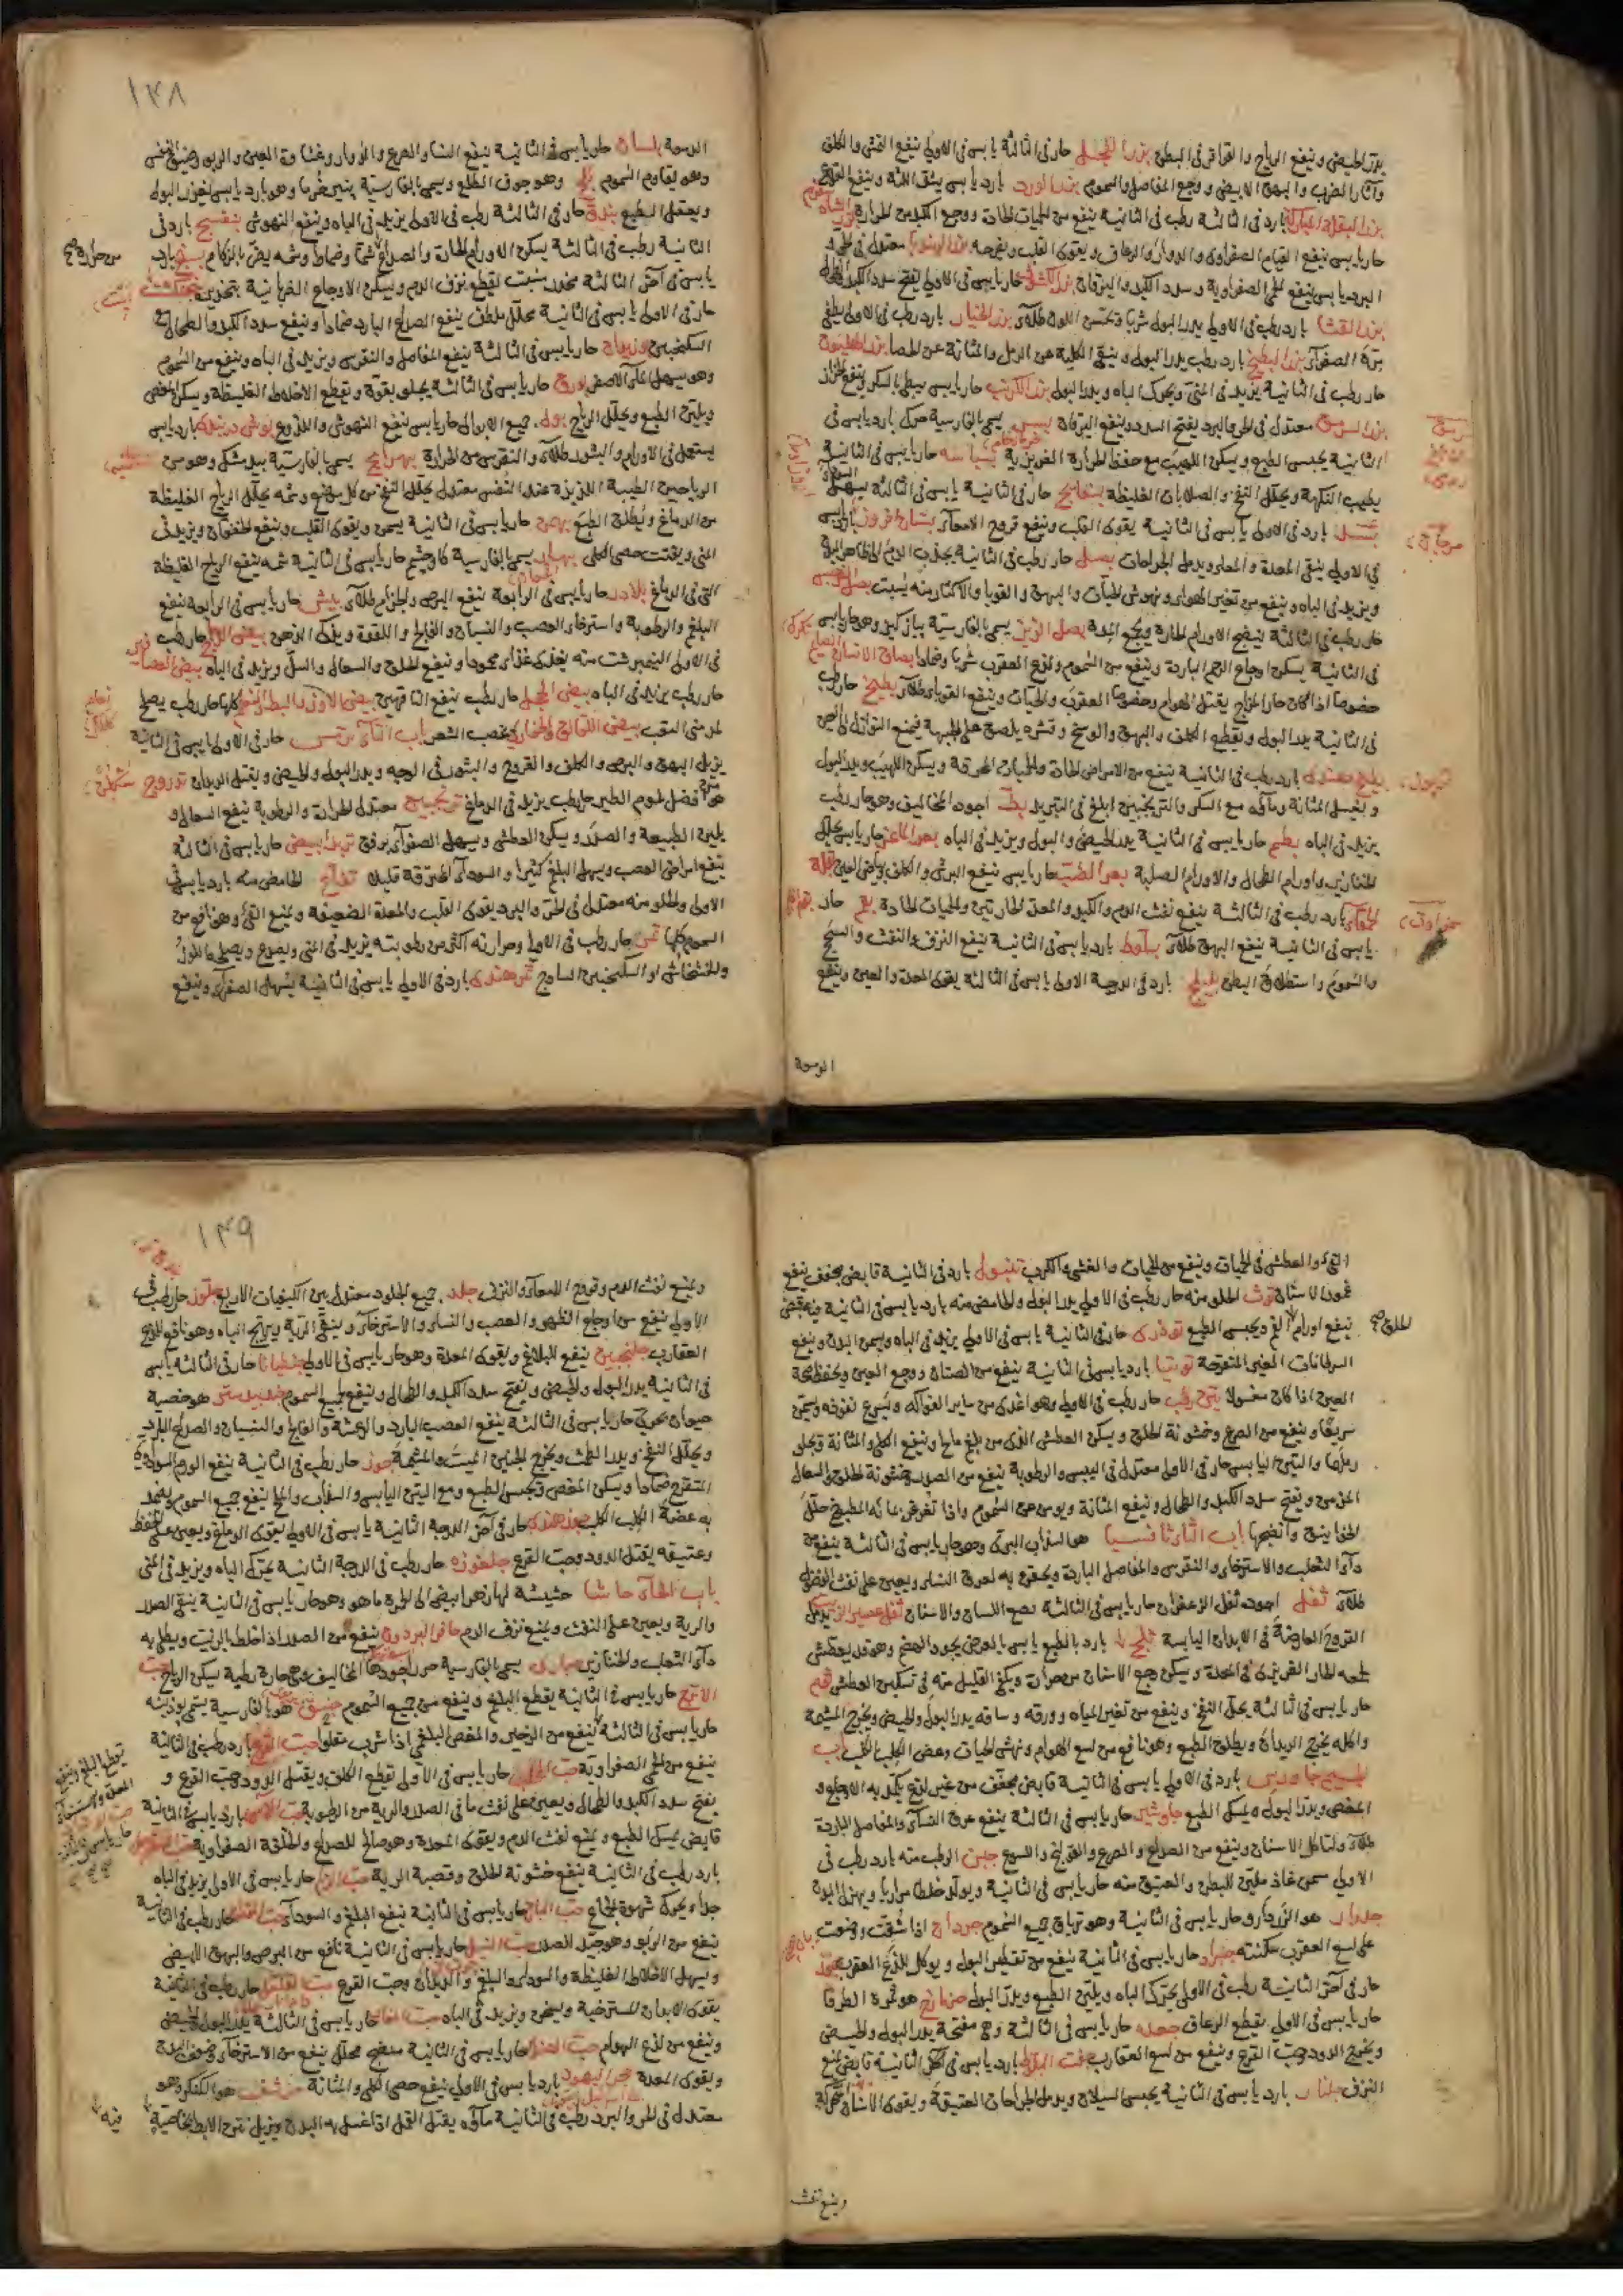 يدر الحيض وينفع الرياح والقراقر فى البطن بزر الفجل حار فى الثالثة يابس فى الاولى ينفع النمش والكلف
وآثار الضرب والبهق الابيض ووجع المفاصل والسموم بزر الورد بارد يابس يشد اللثة وينفع القلاع
بارد فى الثالثة رطب فى الثانية ينفع من الحميات الحادة ووجع الكبد من الحرارة
حار يابس ينفع القيام الصفراوى والدوار والرعاف ويقوى القلب ويفرحه بزر الهندبا معتدل فى الحر و
البرد يابس ينفع الحمى الصفراوية وسدد الكبد واليرقان بزر الكشوث حار يابس فى الاولى يفتح سدد الكبد والطحال
بزر القثا بارد رطب فى الاولى يدر البول شربا ويحسن اللون طلآء بزر الخيار بارد رطب فى الاولى يطفئ
مرة الصفرآء بزر البطيخ بارد رطب يدر البول وينقى الكلية من الرمل والمثانة عن الحصا بزر الهليون
حار رطب فى الثانية يزيد فى المنى ويحرك الباه ويدر البول بزر الكرنب حار يابس يبطئ بالسكر وينفع
معتدل فى الحر والبرد يفتح السدد وينفع اليرقان بسر يسمى بالفارسية بارد يابس فى
الثانية يحبس الطبع ويسكن اللهيب مع حفظ الحرارة الغريزية بسباسه حار يابس فى الثانية
يطيب النكهة ويحلل النفخ والصلابات الغليظة بسفايج حار فى الثانية يابس فى الثالثة يسهل السوداء
بسد بارد فى الاولى يابس فى الثانية يقوى القلب وينفع قروح الامعآء بستان افروز بارد يابس
فى الاولى ينقى المعدة والمعاء ويدمل الجراحات بصل حار رطب فى الثانية يجذب الدم الى ظاهر البدن
ويزيد فى الباه وينفع من تغير الهواء ونهوش الحيات والبهق والقوبا والاكثار منه يسبت
حار رطب فى الثالثة ينضج الاورام الحارة بصل الزيز يسمى بالفارسية وهو حار يابس
فى الثانية يسكن اوجاع الرحم الباردة وينفع من السموم ولدغ العقرب شربا وضمادا بصاق الانسان
خصوصا اذا كان حار المزاج يقتل الهوام وخصوصا العقرب والحيات وينفع القوباء طلآء بطيخ حار رطب
فى الثانية يدر البول ويقطع الكلف والبهق والوسخ وقشره يلصق على الجبهة فيمنع النوازل الى العين
بطيخ هندى بارد رطب فى الثانية ينفع من الامراض الحادة والحميات المحرقة ويسكن اللهيب ويدر البول
و يغسل المثانة ومآؤه مع السكر والترنجبين ابلغ فى التبريد بط اجوده المخاليف وهو حار رطب
يزيد فى الباه بطم حار يابس فى الثانية يدر الحيض والبول ويزيد فى الباه بعر الماعز حار يابس يحلل
الخنازير واورام الطحال والاورام الصلبة بعر الضب حار يابس ينفع البرش والكلف وبياض العين
بارد رطب فى الثالثة ينفع نفث الدم والكبد والمعدة الحارتين والحميات الحادة بقم حار
يابس فى الثانية ينفع البهق طلآء بلوط بارد يابس فى الثانية ينفع النزف والنفث والسحج
والسموم واستطلاق البطن بليلج بارد فى الدرجة الاولى يابس فى الثالثة يقوى المعدة والعين وينفع
الوسوسة
١٣٨
الوسوسة بلسان حار يابس فى الثانية ينفع النسا والصرع والدوار وغشاوة العين والربو وضيق النفس
وهو يقاوم السموم بلح وهو جوف الطلع ويسمى بالفارسية وهو بارد يابس يغزر البول
ويعقل الطبع بندق حار فى الثالثة رطب فى الاولى يزيد فى الباه وينفع النهوش بنفسج بارد فى
الثانية رطب فى الثالثة يسكن الاورام الحادة والصداع شما وضمادا وشمه يضر بالزكام بنج بارد
يابس فى آخر الثالثة مخدر يسبت ليقطع نزف الدم ويسكن الاوجاع الضربانية بتخديره
حار فى الاولى يابس فى الثانية محلل ملطف ينفع الصداع البارد ضمادا وينفع سدد الكبد والطحال مع
السكنجبين بوزيدان حار يابس فى الثالثة ينفع المفاصل والنقرس ويزيد فى الباه وينفع من السموم
وهو يسهل المآء الاصفر بورق حار يابس فى الثالثة يجلو بقوة ويقطع الاخلاط الغليظة ويسكن المغص
ويلين الطبع ويحلل الرياح بول جميع الابوال حار يابس ينفع النهوش واللذوع بوش دربندى بارد يابس
يستعمل فى الاورام والبثور طلآء والنقرس من الحرارة بهرامج يسمى بالفارسية بيد مشك وهو من
الرياحين الطيبة اللذيذة عند النفس معتدل يحلل النفخ من كل موضع وشمه يحلل الرياح الغليظة
من الدماغ ويطلق الطبع بهمن حار يابس فى الثانية يسمن ويقوى القلب وينفع الخفقان ويزيد فى
المنى ويفتت حصى الكلى بهار يسمى بالفارسية كاوچشم حار يابس فى الثانية شمه ينفع الرياح الغليظة
التى فى الدماغ بلادر حار يابس فى الرابعة ينفع البرص والجذام طلآء بيش حار يابس فى الرابعة ينفع
البلغم والرطوبة واسترخاء العصب والنسيان والفالج واللقوة ويذكى الذهن بيض الدجاج حار رطب
فى الاولى النيمبرشت منه يغذى غذاء محمودا وينفع الحلق والسعال والسل ويزيد فى الباه بيض العصافير
حار رطب يزيد فى الباه بيض الحجل حار رطب ينفع الناقهين بيض الاوز والبط كلها حار رطب يصلح
لمدمنى التعب بيض اللقالق والحبارى يخضب الشعر باب التآء ترمس حار فى الاولى يابس فى الثانية
يزيل البهق والبرص والكلف والقروح والبثور فى الوجه ويدر البول والحيض ويقتل الديدان تدروج
هو افضل لحوم الطير حار رطب يزيد فى الدماغ ترنجبين معتدل الحرارة والرطوبة ينفع السعال و
يلين الطبيعة والصدر ويسكن العطش ويسهل الصفرآء برفق تربد ابيض حار يابس فى الثالثة
ينفع امراض العصب ويسهل البلغم كثيرا والسودآء المحترقة قليلا تفاح الحامض منه بارد يابس فى
الاولى والحلو منه معتدل فى الحر والبرد يقوى القلب والمعدة الضعيفة ويمنع القئ وهو نافع من
السموم كلها تمر حار رطب فى الاولى وحرارته اكثر من رطوبته يزيد فى المنى ويصدع ويصلحه اللوز
والخشخاش او السكنجبين الساذج تمر هندى بارد فى الاولى يابس فى الثانية يسهل الصفرآء وينفع
القئ والعطش فى الحميات وينفع من الحميات والغشى والكرب تنبول بارد فى الثانية قابض مجفف ينفع
عمور الاسنان توث الحلو منه حار رطب فى الاولى يدر البول والحامض منه بارد يابس فى الثانية
ينفع اورام الحلق ويحبس الطبع تودرى حار فى الثانية يابس فى الاولى يزيد فى الباه ويسمن البدن وينفع
السرطانات الغير المتقرحة توتيا بارد يابس فى الثانية ينفع من الصنان ووجع العين ويحفظ صحة
العين اذا كان مغسولا تين رطب حار رطب فى الاولى وهو اغذى من ساير الفواكه ويسرع نفوذه ويسمن
سريعا وينفع من الصرع وخشونة الحلق ويسكن العطش الذى من بلغم مالح وينفع الكلى والمثانة ويجلو
رملها والتين اليابس حار فى الاولى معتدل فى اليبس والرطوبة ينفع من الصدر وخشونة الحلق والسعال
المزمن ويفتح سدد الكبد والطحال وينفع المثانة ويؤمن من السموم واذا تغرغر بمآئه المطبوخ حلل
الخنازير وانضجها باب الثآء ثافسيا هو السذاب البرى وهو حار يابس فى الثالثة ينفع من
دآء الثعلب والاسترخاء والنقرس والمفاصل الباردة ويحقن به لعرق النسا ويعين على نفث الفضول
طلآء ثفل اجوده ثفل الزعفران حار يابس فى الثالثة اللسان والاسنان ثفل عصير الزيت يدمل
القروح العارضة فى الابدان اليابسة ثلج بارد بالطبع يابس بالعرض يجود الهضم وهو قد يعطش
لجمعه الحار الغريزى فى المعدة ويسكن وجع الاسنان من حرارة ويكفى القليل منه فى تسكين العطش ثوم
حار يابس فى الثالثة يحلل النفخ وينفع من تغير المياه وورقه وساقه يدر البول والحيض ويخرج المشيمة
واكله يخرج الديدان ويطلق الطبع وهو نافع من لسع الهوام ونهش الحيات وعض الكلب الكلب باب
الجيم جاورس بارد فى الاولى يابس فى الثانية قابض مجفف من غير لذع يكمد به الاوجاع و
المغص ويدر البول ويمسك الطبع جاوشير حار يابس فى الثالثة ينفع عرق النسآء والمفاصل الباردة
طلآء ولتاكل الاسنان وينفع من الصداع والصرع والقولنج واللسوع جبن الرطب منه بارد رطب فى
الاولى مسمن غاذ ملين للبطن والعتيق منه حار يابس فى الثانية ويولد خلطا مراريا ويهزل البدن
جدوار هو الزردار وحار يابس فى الثانية وهو ترياق جميع السموم اذا شقت ووضعت
على لسع العقرب سكنته حار يابس فى الثانية ينفع من تقطير البول ويوكل للذع العقرب
حار فى آخر الثانية رطب فى الاولى يحرك الباه ويلين الطبع ويدر البول جزمازج هو ثمرة الطرفا
حار يابس فى الاولى يقطع الرعاف جعده حار يابس فى الثالثة وهى مفتحة يدر البول والحيض
ويخرج الدود وحب القرع وينفع من لسع العقارب جفت البلوط بارد يابس فى آخر الثانية قابض يمنع
النزف جلنار بارد يابس فى الثانية يحبس السيلان ويدمل الجراحات العتيقة ويقوى الاسنان المتحركة
ويمنع نفث
١٣٩
ويمنع نفث الدم وقروح الامعآء والنزف جلد جميع الجلود معتدل بين الكيفيات الاربع جلوز حار رطب فى
الاولى ينفع من اوجاع الظهر والعصب والنسا والاسترخآء وينقى الرية ويهيج الباه وهو نافع للدغ
العقارب جلنجبين ينفع البلاغم ويقوى المعدة وهو حار يابس فى الاولى جنطيانا حار فى الثالثة يابس
فى الثانية يدر البول والحيض ويفتح سدد الكبد والطحال وينفع جميع السموم جندبيدستر هو خصية
حيوان بحرى حار يابس فى الثالثة ينفع العصب البارد والرعشة والفالج والنسيان والصداع البارد
ويحلل النفخ ويدر الطمث ويخرج الجنين الميت والمشيمة جوز حار رطب فى الثانية ينفع الورم السوداوى
المتقرح ضمادا ويسكن المغص ويحبس الطبع ومع التين اليابس والسذاب والملح ينفع جميع السموم ويضمد
به عضة الكلب الكلب جوز هندى حار فى آخر الدرجة الثانية يابس فى الاولى يقوى الدماغ ويعين على الحفظ
وعتيقه يقتل الدود وحب القرع جلغوزه حار رطب فى الدرجة الثانية يحرك الباه ويزيد فى المنى
باب الحآء حاشا حشيشة لها زهر ابيض الى الحمرة ما هو وهو حار يابس فى الثانية ينقى الصدر
والرية ويعين على النفث ويمنع نزف الدم حافر البردون ينفع من الصدر اذا خلط بالزيت ويطلى به
دآء الثعلب والخنازير حبارى يسمى بالفارسية اجودها المخاليف وهى حارة رطبة يسكن الرياح حب
الاترج حار يابس فى الثانية يقطع البلغم وينفع من جميع السموم حبق هو بالفارسية يسمى پودينه
حار يابس فى الثالثة ينفع من الزحير والمغص البلغمى اذا شرب مقلوا حب القرع بارد رطب فى الثالثة
ينفع من الحمى الصفراوية حار يابس فى الاولى يقطع الكلف ويقتل الدود وحب القرع و
يفتح سدد الكبد والطحال ويعين على نفث ما فى الصدر والرية من الرطوبة حب الآس بارد يابس فى الثانية
قابض يمسك الطبع ويمنع نفث الدم ويقوى المعدة وهو صالح للصداع والخلفة الصفراوية
بارد رطب فى الثانية ينفع خشونة الحلق وقصبة الرية حار يابس فى الاولى يزيد فى الباه
جدا ويحرك شهوة الجماع حب البان حار يابس فى الثانية ينفع البلغم والسودآء حار رطب فى الثانية
ينفع من الربو وهو جيد الصدر حب النيل حار يابس فى الثانية نافع من البرص والبهق الابيض
ويسهل الاخلاط الغليظة والسودا والبلغم والديدان وحب القرع حب القلقل حار رطب فى الثانية
يقوى الابدان المسترخية ويسخن ويزيد فى الباه حار يابس فى الثالثة يدر البول والحيض
وينفع من لدغ الهوام حار يابس فى الثانية منضج محلل ينفع من الاسترخآء
ويقوى المعدة حجر اليهود بارد يابس فى الاولى ينفع حصى الكلى والمثانة حرشف هو الكنكر وهو
معتدل فى الحر والبرد رطب فى الثانية مآؤه يقتل القمل اذا غسل به البدن ويزيل نتن الابط بخاصية